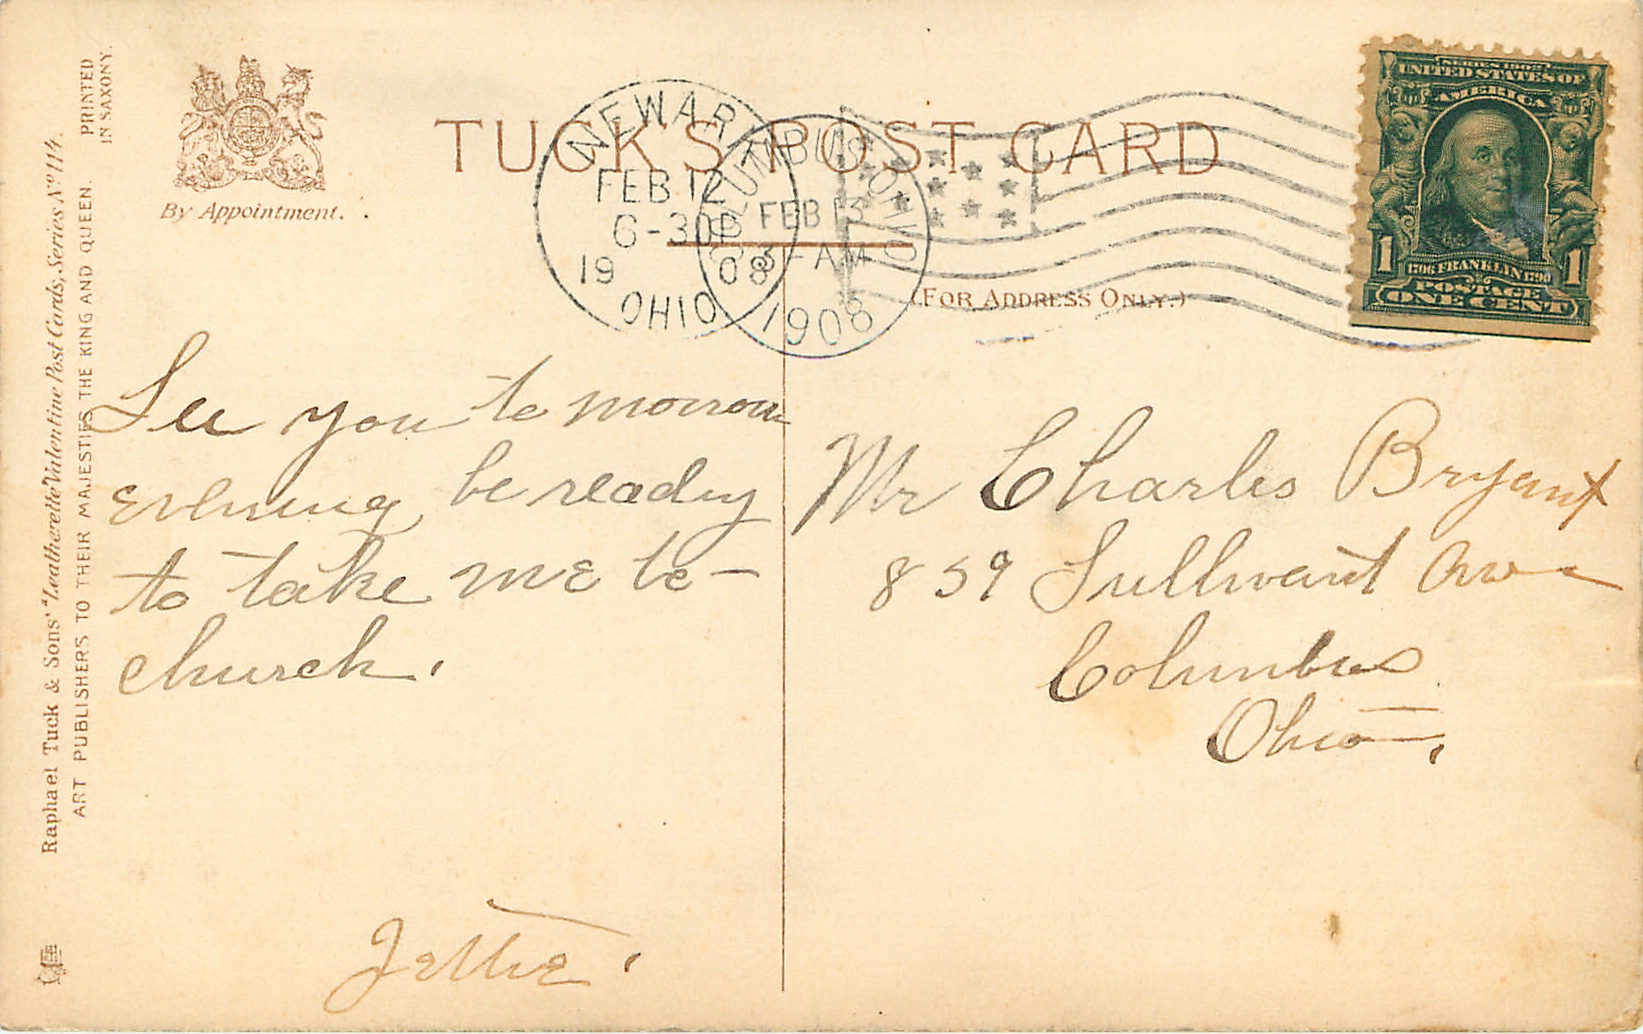 Raphael Tuck & Sons' "Leatherette Valentine Post Cards, Series Nº 114.
ART PUBLISHERS TO THEIR MAJESTIES THE KING AND QUEEN.
PRINTED
IN SAXONY.
By Appointment.
TUCK'S POST CARD
(FOR ADDRESS ONLY.)
NEWARK
FEB 12
6-30P
19 08
OHIO
COLUMBUS, OHIO
FEB 13
3-AM
1908
SERIES 1902
UNITED STATES OF
AMERICA
1706 FRANKLIN 1790
1 POSTAGE 1
ONE CENT
See you to morrow
evening, be ready
to take me to –
church.
Jettie.
Mr Charles Bryant
859 Sullivant Ave
Columbus
Ohio.